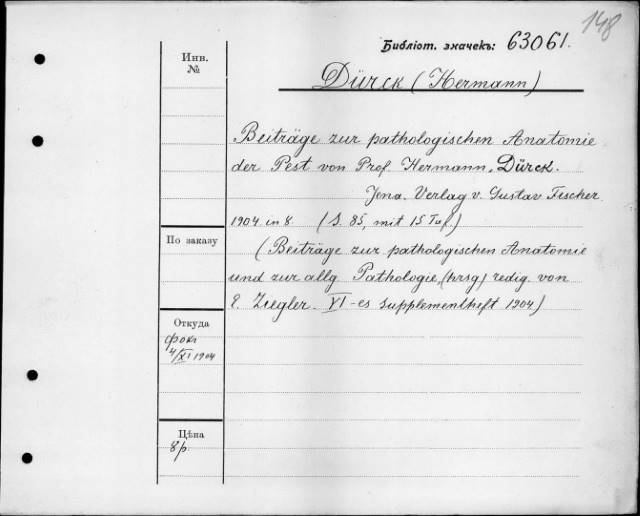 148
Библіот. значекъ: 63061.
Инв.
№
Dürck (Hermann)
Beiträge zur pathologischen Anatomie
der Pest von Prof. Hermann Dürck.
Jena. Verlag v. Gustav Fischer
1904 in 8. (S. 85, mit 15 Taf.)
По заказу
(Beiträge zur pathologischen Anatomie
und zur allg Pathologie, (hrsg) redig. von
E. Ziegler. VI-es Supplementheft 1904)
Откуда
4/XI 1904
Цѣна
8р.